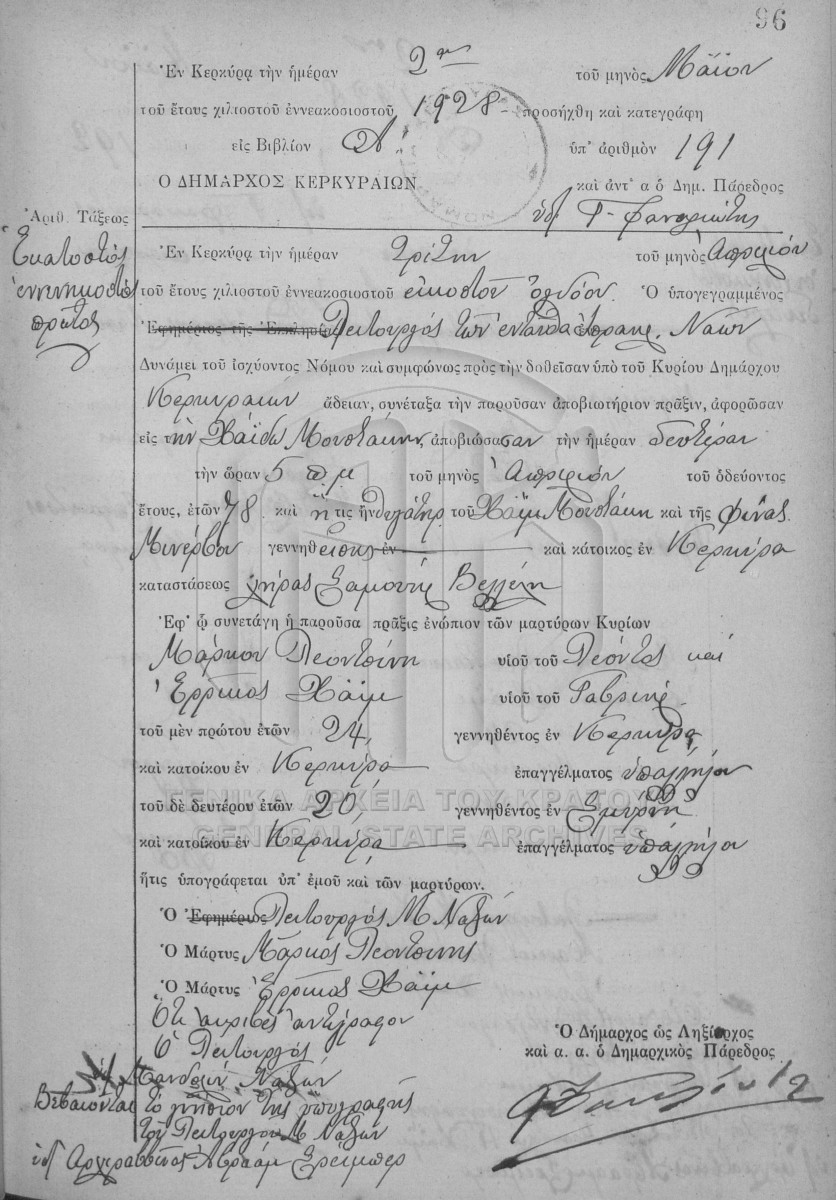 96
Ἐν Κερκύρᾳ τὴν ἡμέραν 2αν τοῦ μηνὸς Μαΐου
τοῦ ἔτους χιλιοστοῦ ἐννεακοσιοστοῦ 1928 προσήχθη καὶ κατεγράφη
εἰς Βιβλίον ὑπ' ἀριθμὸν 191
Ο ΔΗΜΑΡΧΟΣ ΚΕΡΚΥΡΑΙΩΝ
καὶ ἀντ' α ὁ Δημ. Πάρεδρος
Ἀριθ. Τάξεως
Ἑκατοστὸς
ἐννενηκοστὸς
πρῶτος
Ἐν Κερκύρᾳ τὴν ἡμέραν Τρίτην τοῦ μηνὸς Ἀπριλίου
τοῦ ἔτους χιλιοστοῦ ἐννεακοσιοστοῦ εἰκοστοῦ ὀγδόου. Ὁ ὑπογεγραμμένος
Ἐφημέριος τῆς Ἐκκλησίας Λειτουργὸς τῶν ἐνταῦθα Ναῶν
Δυνάμει τοῦ ἰσχύοντος Νόμου καὶ συμφώνως πρὸς τὴν δοθεῖσαν ὑπὸ τοῦ Κυρίου Δημάρχου
Κερκυραίων ἄδειαν, συνέταξα τὴν παροῦσαν ἀποβιωτήριον πρᾶξιν, ἀφορῶσαν
εἰς τὴν Χάϊδω Μουστάκη, ἀποβιώσασαν τὴν ἡμέραν Δευτέραν
τὴν ὥραν 5 π.μ τοῦ μηνὸς Ἀπριλίου τοῦ ὁδεύοντος
ἔτους, ἐτῶν 78 καὶ ἥτις ἦν θυγάτηρ τοῦ Χαΐμ Μουστάκη καὶ τῆς
Μινέρβου γεννηθείσης ἐν καὶ κάτοικος ἐν Κερκύρᾳ
καταστάσεως χήρας Σαμουὴλ Βελλέλη
Ἐφ' ᾧ συνετάγη ἡ παροῦσα πρᾶξις ἐνώπιον τῶν μαρτύρων Κυρίων
Μάρκου Λεοντσίνη υἱοῦ τοῦ Λεόντος καὶ
Ἐρρίκος Χαΐμ υἱοῦ τοῦ Γαβριὴλ
τοῦ μὲν πρώτου ἐτῶν 24, γεννηθέντος ἐν Κερκύρᾳ
καὶ κατοίκου ἐν Κερκύρᾳ ἐπαγγέλματος ὑπαλλήλου
τοῦ δὲ δευτέρου ἐτῶν 20, γεννηθέντος ἐν Σμύρνῃ
καὶ κατοίκου ἐν Κερκύρᾳ ἐπαγγέλματος ὑπαλλήλου
ἥτις ὑπογράφεται ὑπ' ἐμοῦ καὶ τῶν μαρτύρων.
Ὁ Ἐφημέριος Λειτουργὸς Μ Ναξὼν
Ὁ Μάρτυς Μάρκος Λεοντσίνης
Ὁ Μάρτυς Ἐρρίκος Χαΐμ
Ὅτι ἀκριβὲς ἀντίγραφον
Ὁ Λειτουργὸς
Ναξὼν
Βεβαιοῦται τὸ γνήσιον τῆς ὑπογραφῆς
τοῦ Λειτουργοῦ Μ Ναξὼν
Ἀρχιραββῖνος Ἀβραὰμ
Ὁ Δήμαρχος ὡς Ληξίαρχος
καὶ α. α. ὁ Δημαρχικὸς Πάρεδρος
ΓΕΝΙΚΑ ΑΡΧΕΙΑ ΤΟΥ ΚΡΑΤΟΥΣ
GENERAL STATE ARCHIVES